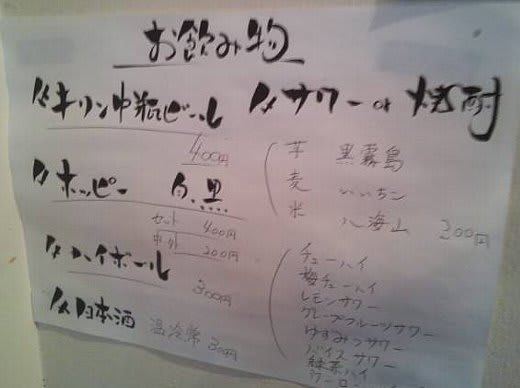 お飲み物
キリン中瓶ビール
400円
ホッピー 白、黒
セット 400円
中・外 200円
ハイボール
300円
日本酒 温冷常 300円
サワー or 焼酎
芋 黒霧島
麦 いいちこ
米 八海山 300円
チューハイ
梅チューハイ
レモンサワー
グレープフルーツサワー
ゆずみつサワー
バイスサワー
緑茶ハイ